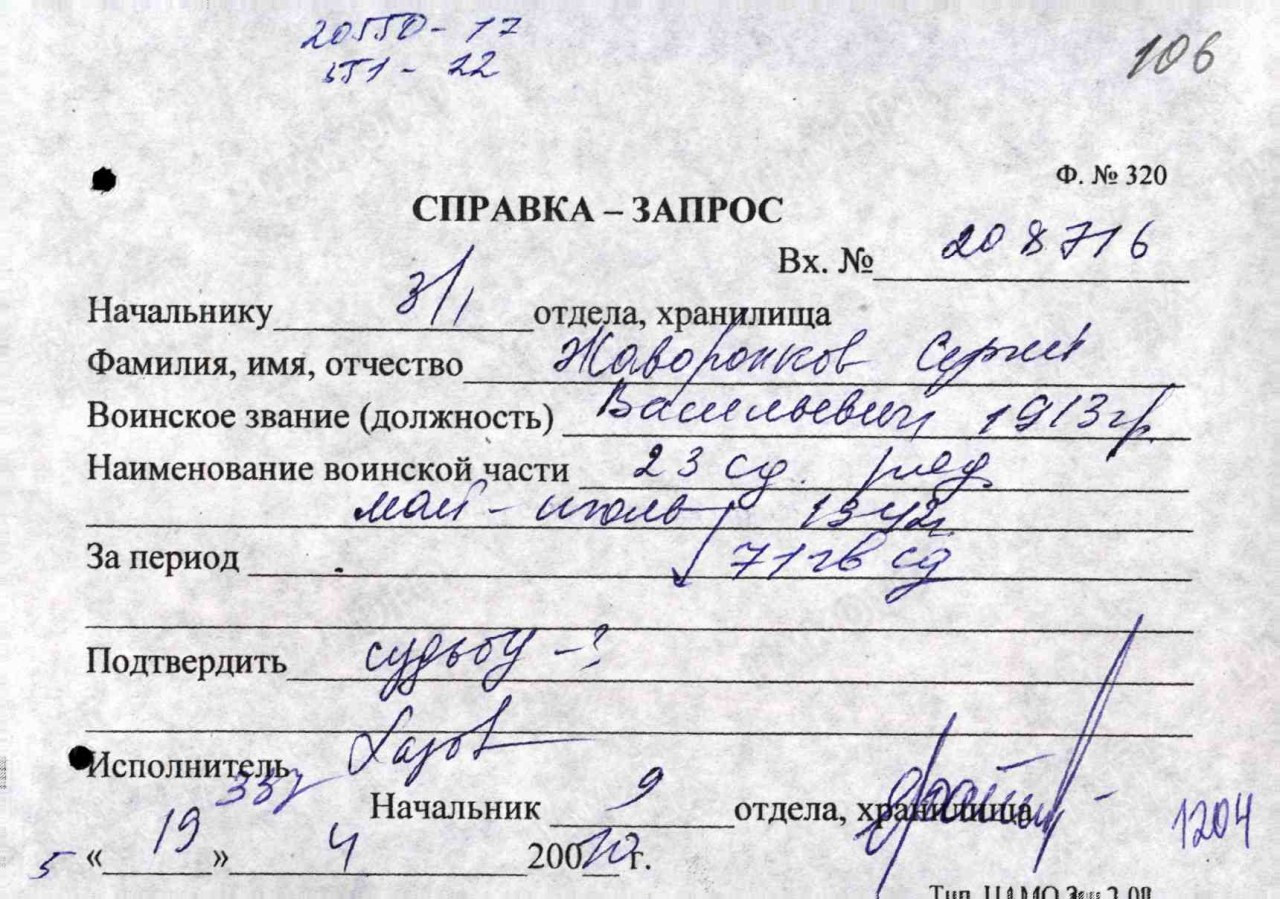 20550 - 17
551 - 22
106
Ф. № 320
СПРАВКА – ЗАПРОС
Вх. № 208716
Начальнику 3/1 отдела, хранилища
Фамилия, имя, отчество Жаворонков Сергей
Воинское звание (должность) Васильевич 1913гр
Наименование воинской части 23 сд. ряд
май - июль 1942г
За период 71 гв сд
Подтвердить судьбу - ?
Исполнитель Хазов
Начальник 9 отдела, хранилища
1204
5 « 19 » 4 200 г.
Тип. ЦАМО Зак 3-08